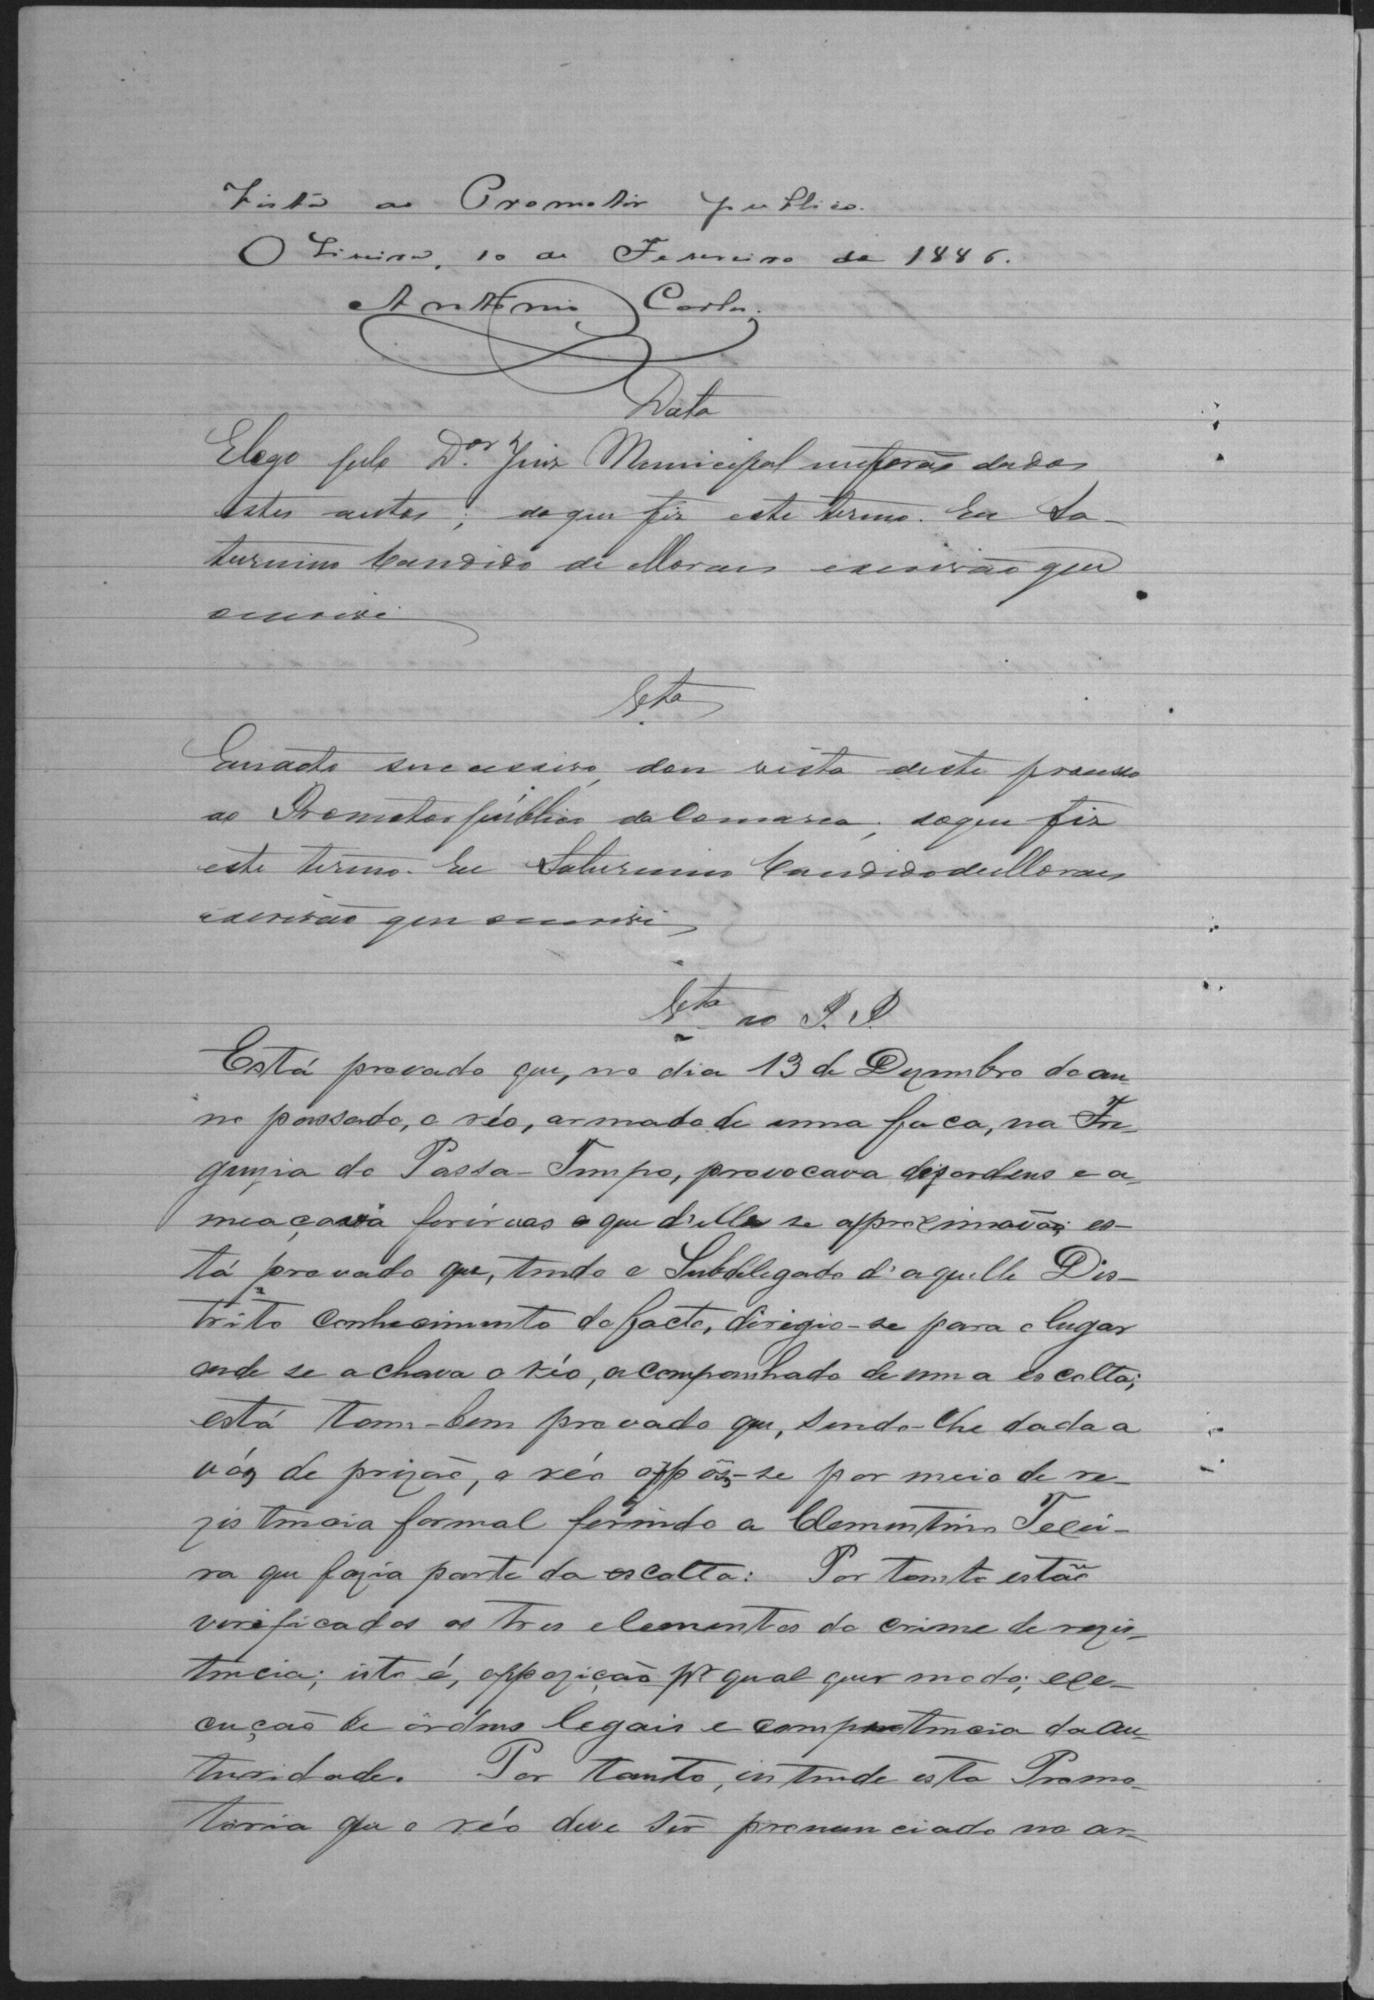 Vista ao Promotor publico.
Oliveira, 10 de Fevereiro de 1886.
Antonio Carlos
Data
E logo pelo Dor Juiz Municipal me forão dados
estes autos; do que fiz este termo. Eu Sa-
turnino Candido de Moraes escrivão que
escrevi
Vta
Em acto successivo, dou vista deste processo
ao Promotor público da Comarca; do que fiz
este termo. Eu Saturnino Candido de Moraes
escrivão que escrevi
Vta ao P. P.
Está provado que, no dia 13 de Dezembro do an-
no passado, o réo, armado de uma faca, na Fre-
guezia do Passa-Tempo, provocava dezordens e a-
meaçava ferir aos que d'elle se aproximavão; es-
tá provado que, tendo o Subdelegado d'aquelle Dis-
tricto conhecimento do facto, dirigio-se para o lugar
onde se achava o réo, acompanhado de uma escolta;
está tam-bem provado que, sendo-lhe dada a
vóz de prizão, o réo oppôz-se por meio de re-
zistencia formal ferindo a Clementino Teixei-
ra que fazia parte da escolta: Por tanto estão
verificados os tres elementos do crime de rezis-
tencia; isto é, oppozição pr qual quer modo; exe-
cução de órdens legais e competencia da au-
turidade. Por tanto, intende esta Promo-
toria que o réo deve sêr pronunciado no ar-